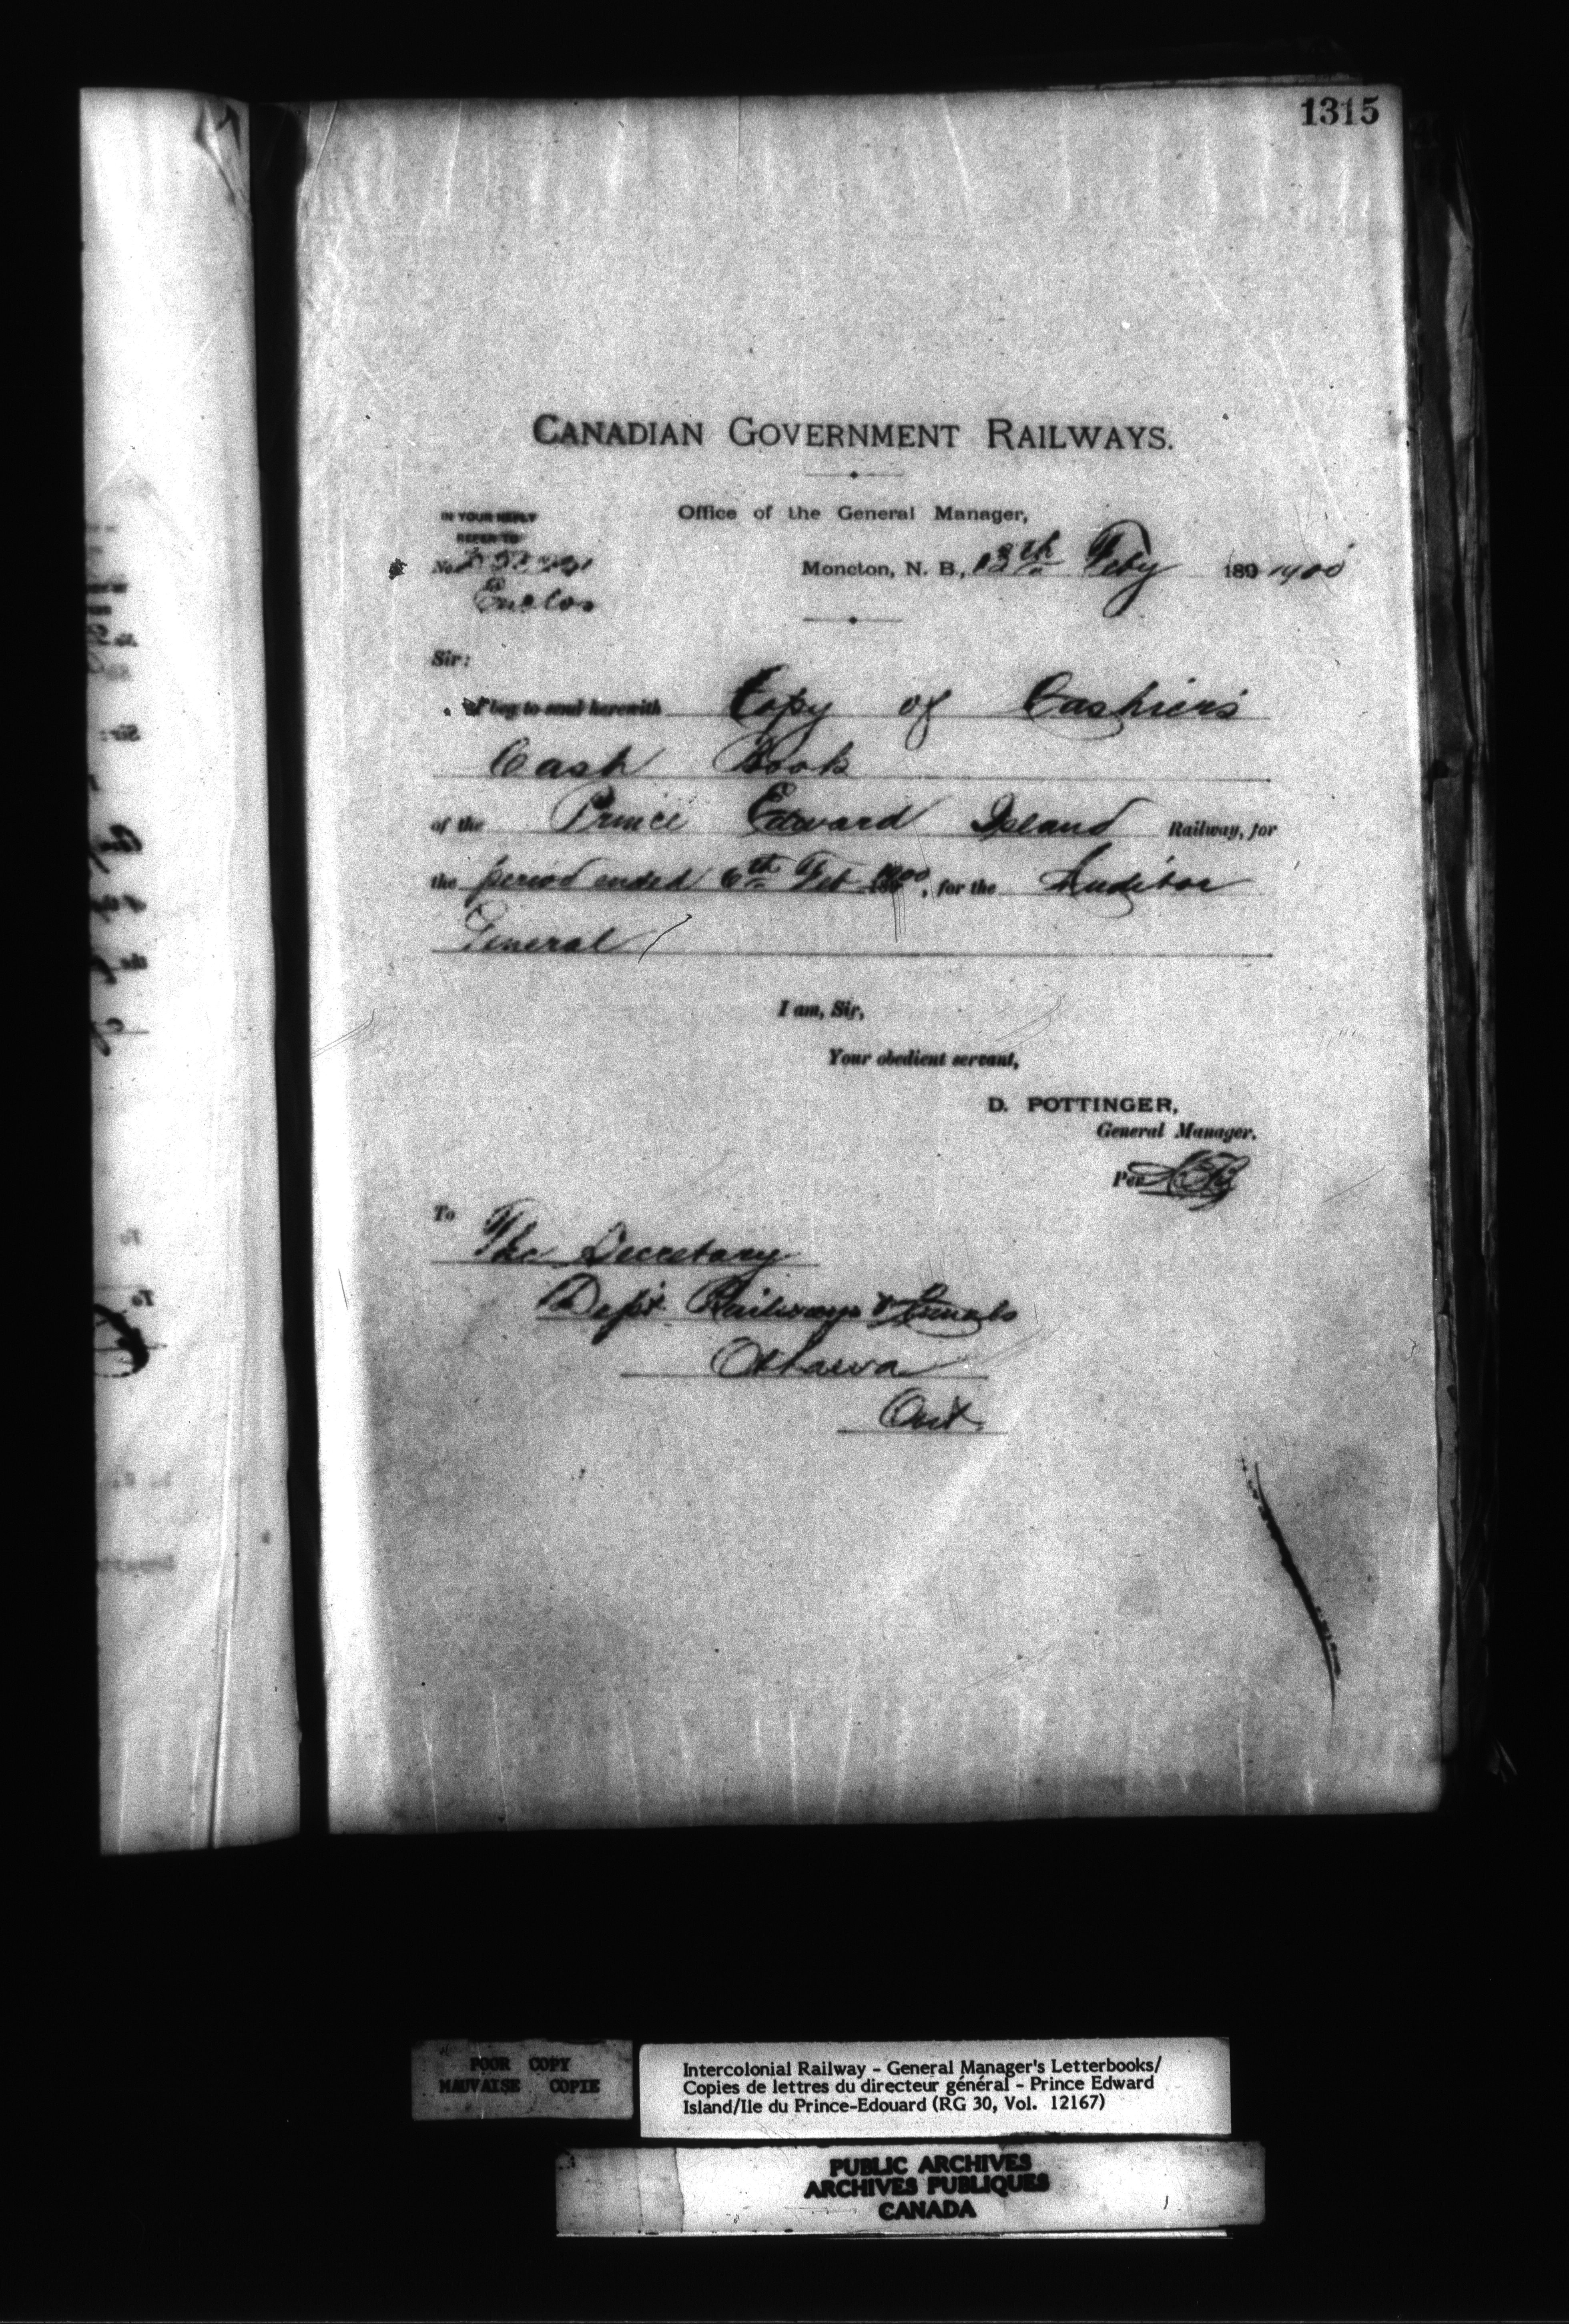 1315
CANADIAN GOVERNMENT RAILWAYS.
IN YOUR REPLY
REFER TO
Office of the General Manager,
No.
Moncton, N. B., 13th Feby 189 1900
Enclos
Sir:
I beg to send herewith Copy of Cashiers
Cash Book
of the Prince Edward Island Railway, for
the period ended 6th Feb 1900, for the Auditor
General
I am, Sir,
Your obedient servant,
D. POTTINGER,
General Manager.
Per
To
The Secretary
Dept Railways & Canals
Ottawa
Ont.
POOR COPY
MAUVAISE COPIE
Intercolonial Railway - General Manager's Letterbooks/
Copies de lettres du directeur général - Prince Edward
Island/Ile du Prince-Edouard (RG 30, Vol. 12167)
PUBLIC ARCHIVES
ARCHIVES PUBLIQUES
CANADA